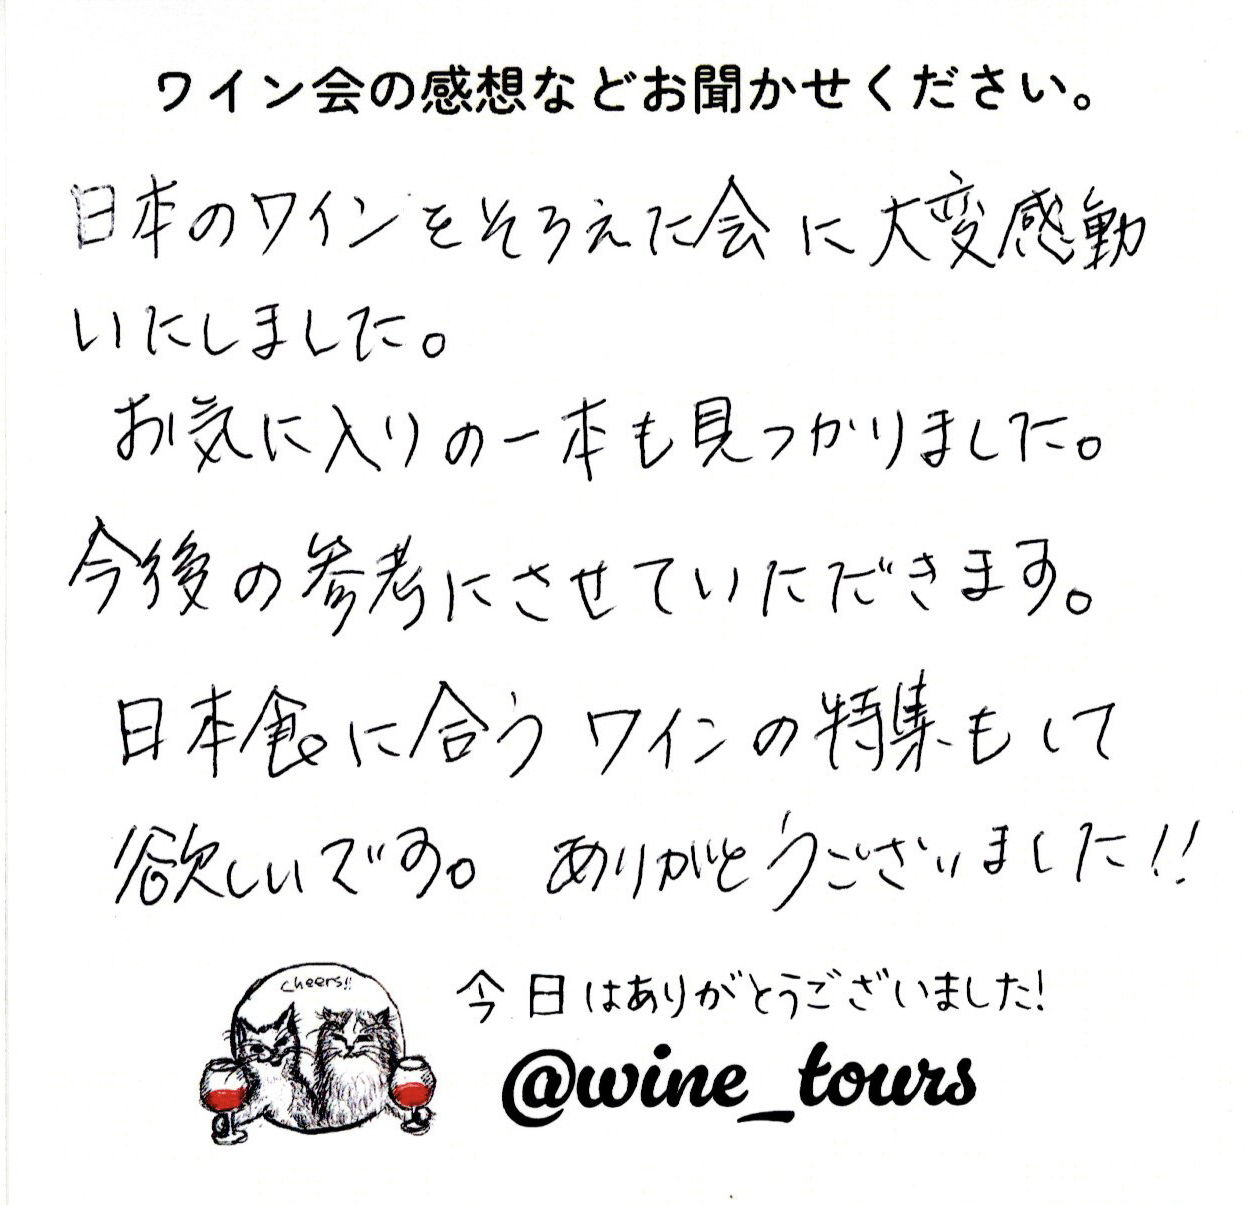 ワイン会の感想などお聞かせください。
日本のワインをそろえた会に大変感動
いたしました。
お気に入りの一本も見つかりました。
今後の参考にさせていただきます。
日本食に合うワインの特集もして
欲しいです。ありがとうございました!!
cheers!!
今日はありがとうございました!
@wine_tours